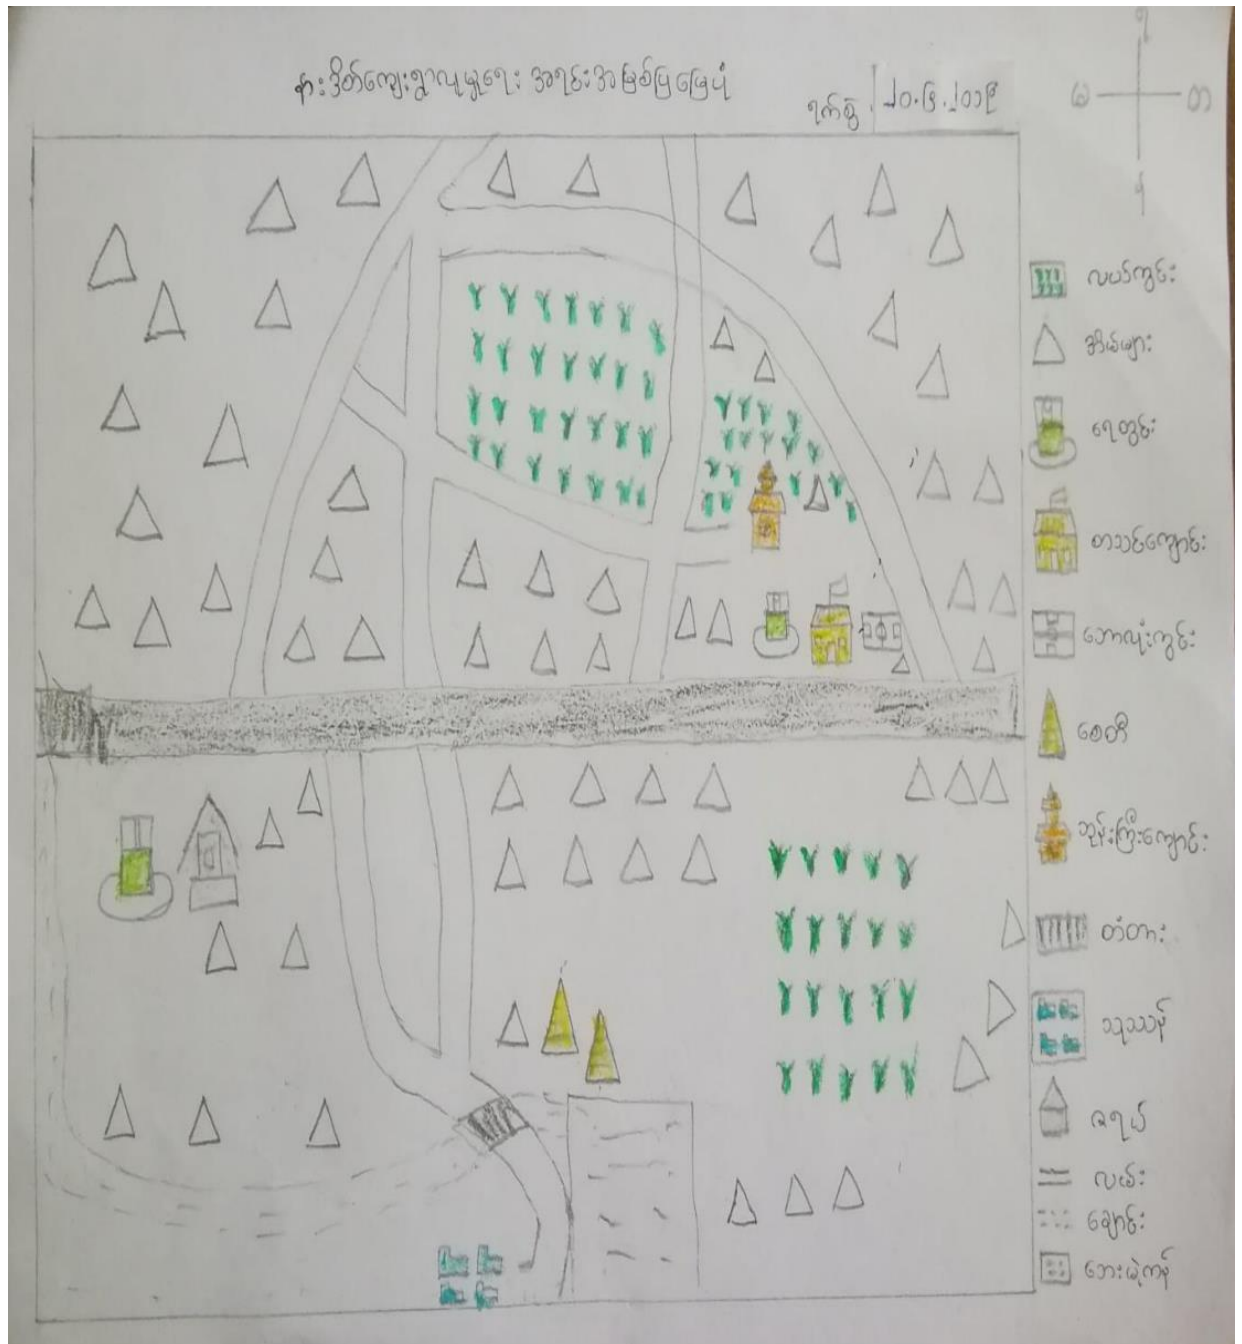 နားဒိတ်ကျေးရွာလူမှုရေး အရင်းအမြစ်ပြမြေပုံ
ရက်စွဲ . ၂၀.၆.၂၀၁၉
မ
တ
လယ်ကွင်း
အိမ်များ
ရေတွင်း
စာသင်ကျောင်း
ဘောလုံးကွင်း
စေတီ
ဘုန်းကြီးကျောင်း
တံတား
သုသာန်
ဇရပ်
လမ်း
ချောင်း
ဘေးမဲ့ကန်